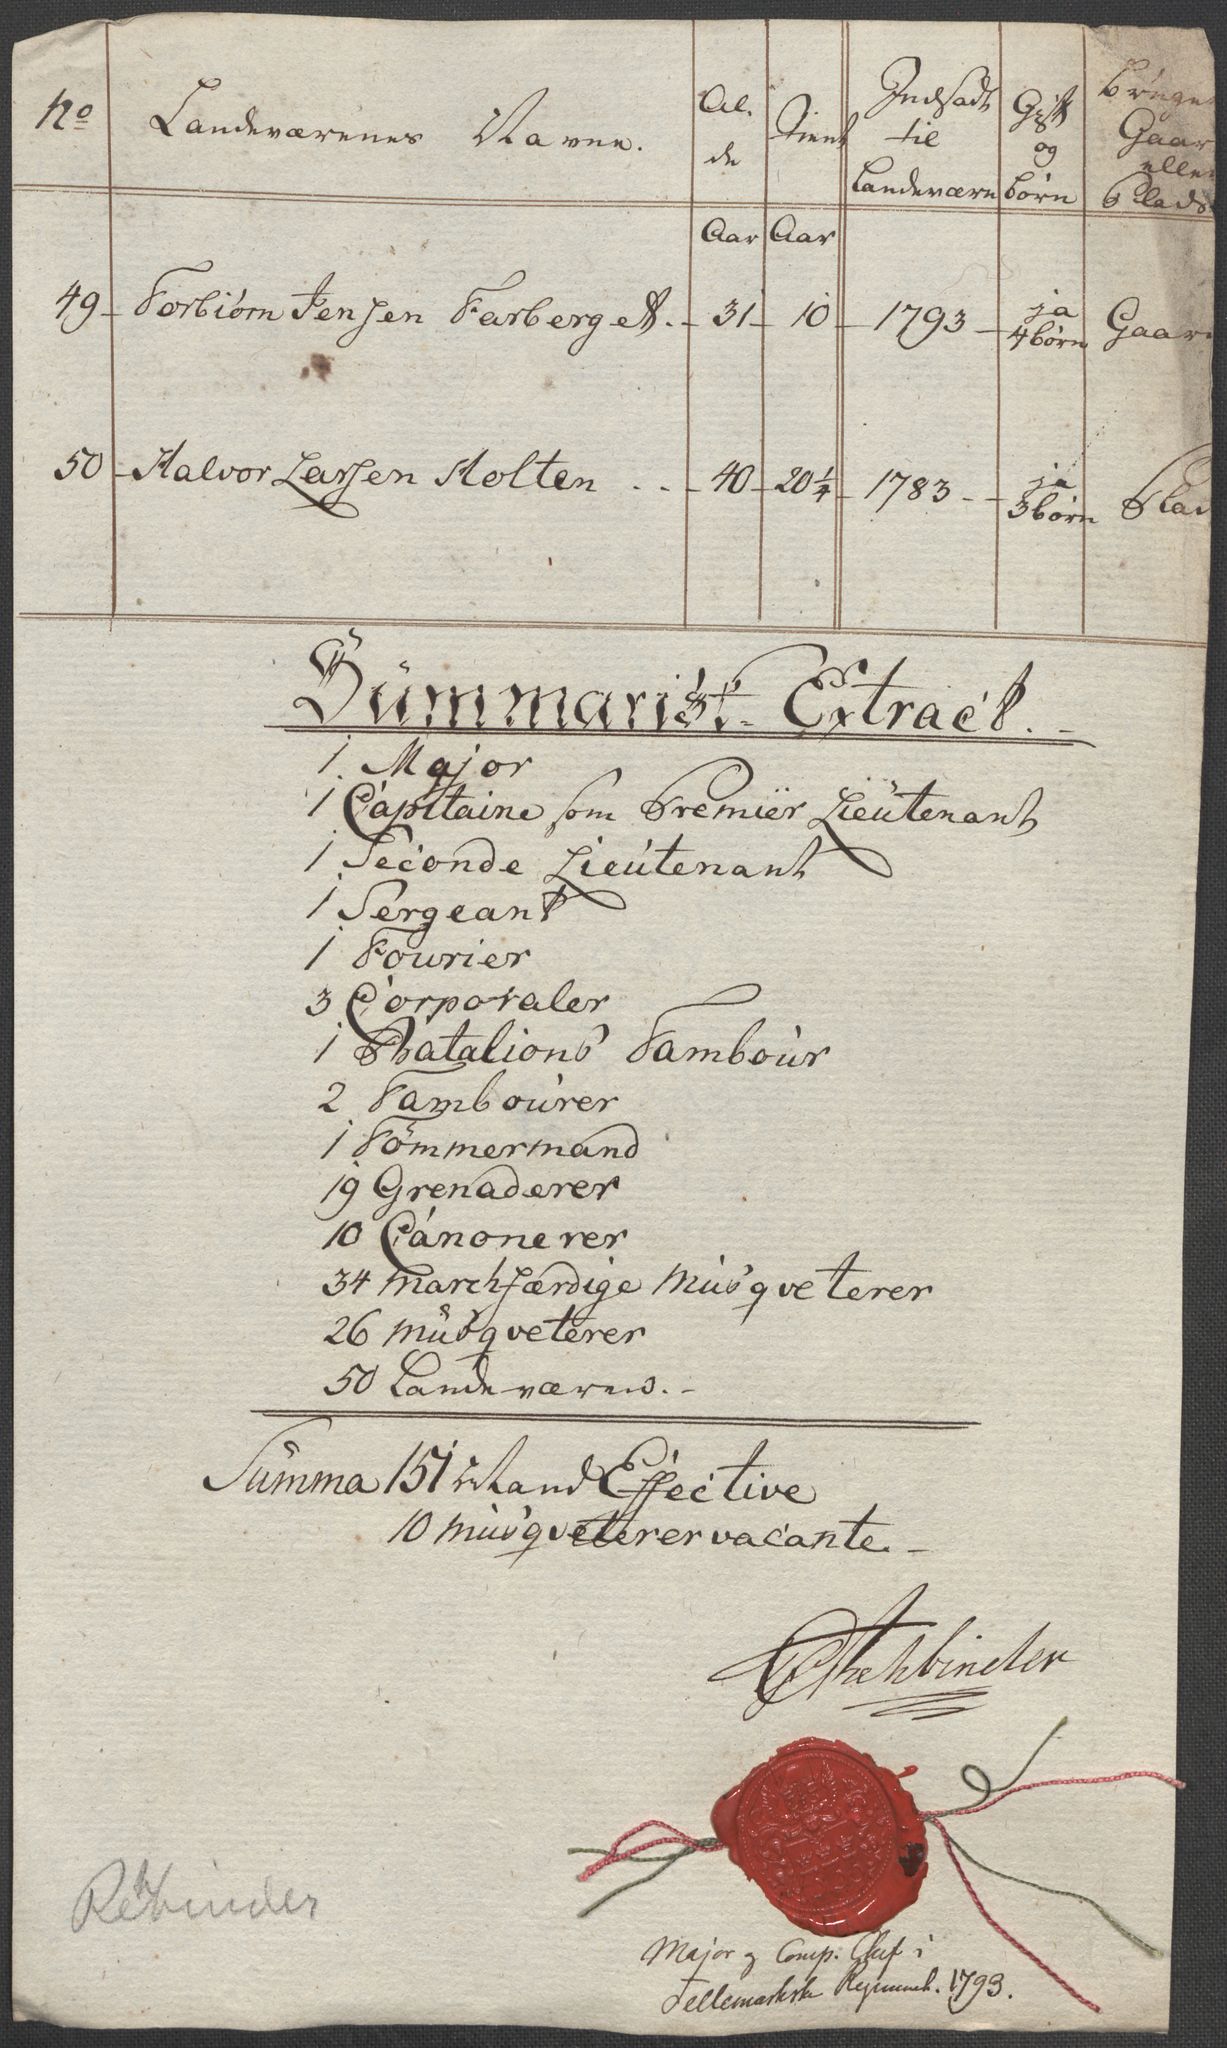 No Landeværenes Navne. Al. Tient Indsadt Gift Brüge
de til og Gaar
Landeværn börn elle
Plads
Aar Aar
49 - Torbiörn Jensen Farberget. - 31 - 10 - 1793 - ja Gaar
4 börn
50 - Halvor Larsen Holten . . - 40 - 20 1/4 - 1783 - - ja Plad
3 börn
Summarist. Extract.
1 Major
1 Capitaine som Premier Lieutenant
1 Seconde Lieutenant
1 Sergeant
1 Fourier
3 Corporaler
1 Batalions Tambour
2 Tambourer
1 Tömmermand
19 Grenaderer
10 Canonerer
34 marchfærdige Musqveterer
26 Musqveterer
50 Landeværens. -
Summa 151 Mand Effective
10 musqveterer vacante. -
Rehbinder
Rehbinder
Major og Comp. Chef i
Tellemarkske Regiment. 1793.